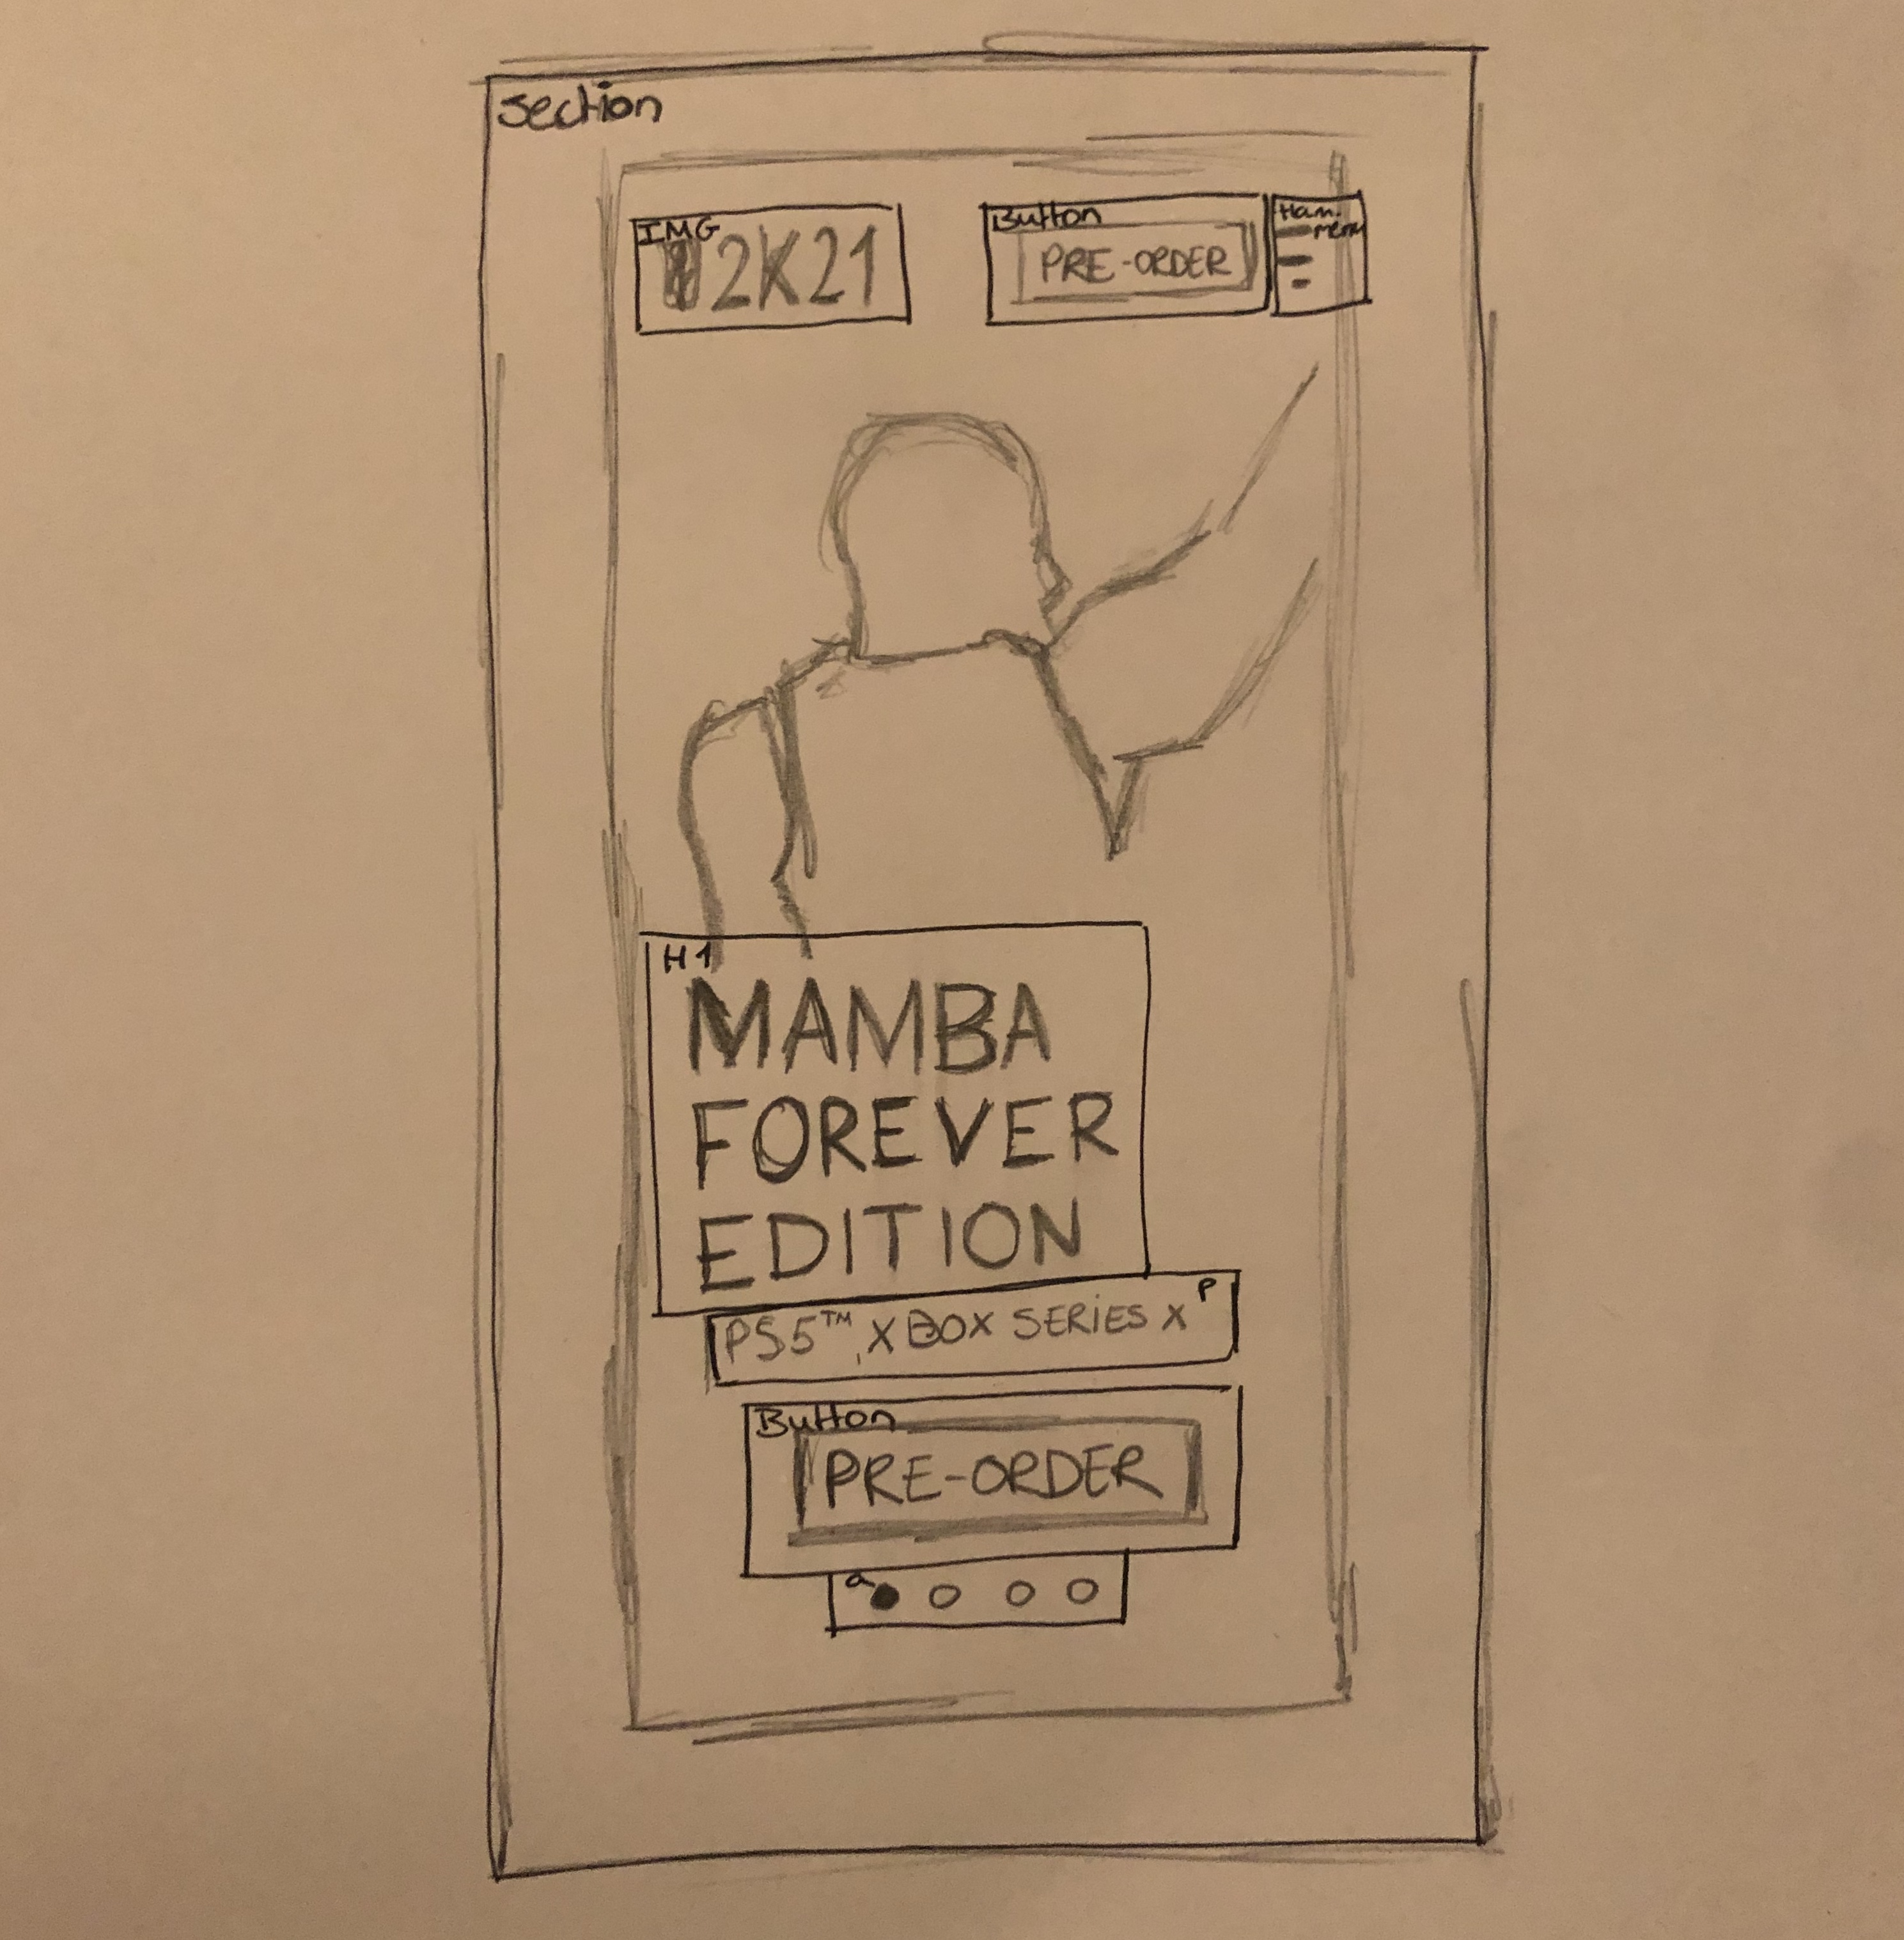 Section
IMG
2K21
Button
PRE-ORDER
Ham.
menu
H1
MAMBA
FOREVER
EDITION
P
PS5™, XBOX SERIES X
Button
PRE-ORDER
a